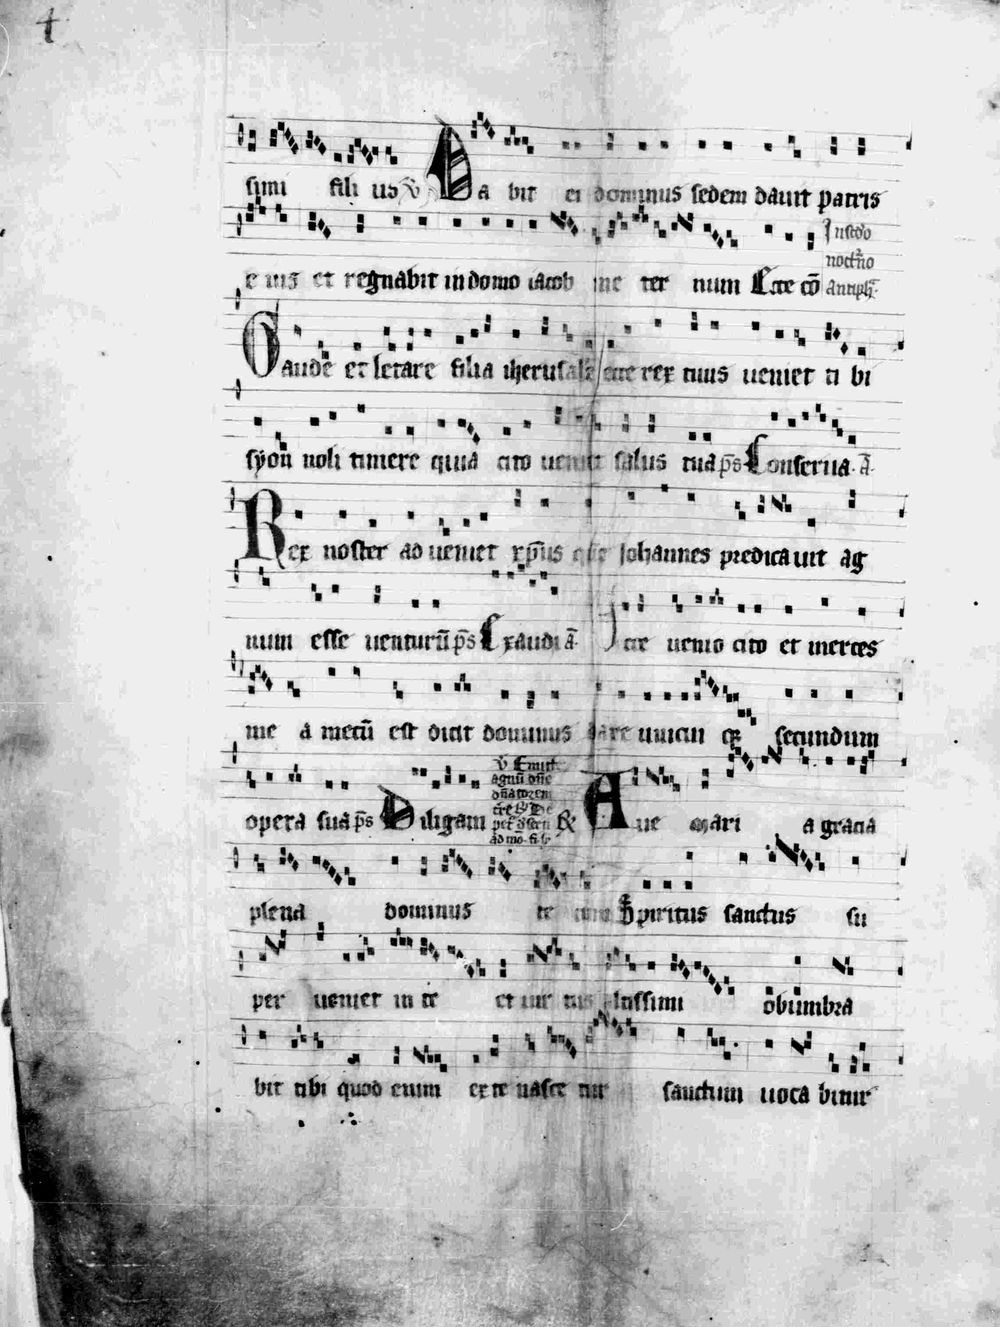 4
simi fili us v̄ Da bit ei dominus sedem dauit patris
e ius et regnabit in domo iacob in e ter num Ecce cō
In scd̄o
noctn̄o
antiph̄.
Gaude et letare filia iherusalē ecce rex tuus ueniet ti bi
syon noli timere quia cito ueniet salus tua p̄s Conserua. ā.
Rex noster ad ueniet xp̄us quē Johannes predicauit ag
num esse uenturū p̄s Exaudi ā. Ecce uenio cito et merces
me a mecū est dicit dominus dare unicui q̄ secundum
v̄ Emitte
agnū dn̄e
dn̄atorem
opera sua p̄s Diligam R Aue Mari a gracia
plena dominus te cum Spiritus sanctus su
per ueniet in te et uir tus altissimi obumbra
bit tibi quod enim ex te nasce tur sanctum uoca bitur